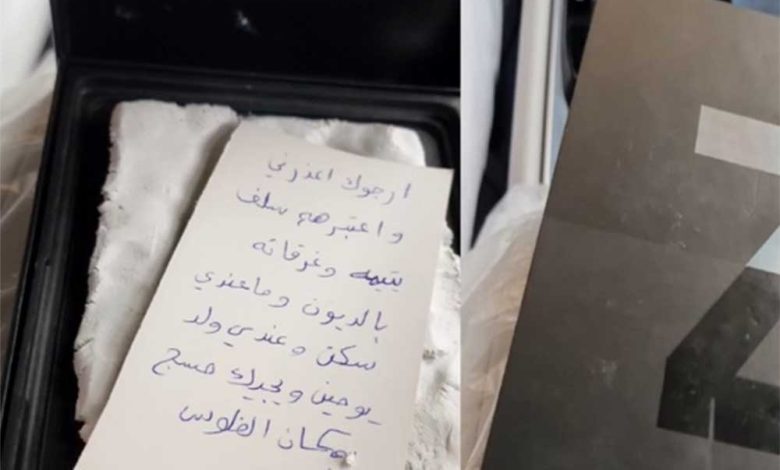 ارجوك اعذرني
واعتبرهم سلف
يتيمه وغرقانه
بالديون وماعندي
سكن وعندي ولد
يومين ويجيك مسج
مكان الفلوس
Z